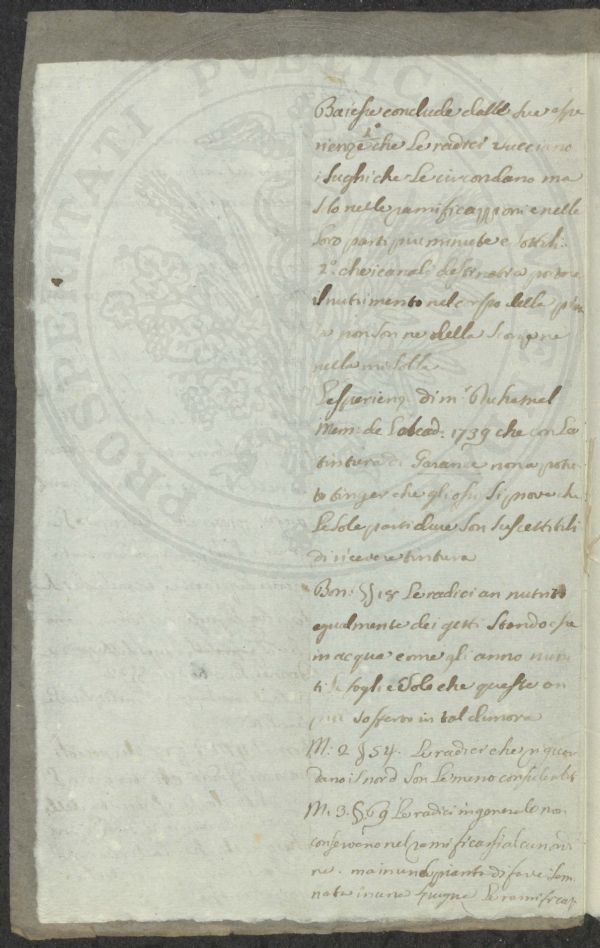 PROSPERITATI PUBLICAE
Baiesse conclude dalle sue espe
rienze che 1º Le radici succiano
i sughi che Le circondano ma
solo nelle ramificazzioni e nelle
loro parti piu minute e sottili.
2º. che i canali destinati a portare
il nutrimento nel corpo della
non son ne della scorza ne
nella midolla
L'esperienz. di mʳ Duhamel
Mem: de L'acad: 1739 che con La
tintura di Garance non a potu
to tinger che gli ossi si prova che
Le sole parti dure son suscettibili
di ricevere tintura
Bon: §§ 18 Le radici an nutrito
egualmente dei getti stando esse
in acqua come gli anno nutri
ti Le foglie solo che queste an
piu sofferto in tal dimora
M. 2 § 54. Le radici che riguar
dano il nord son Le meno
M. 3. §. 69 Le radici in generale non
conservano nel ramificarsi alcun ordi
ne. ma in una pianta di fave semi
nata in una Le ramificaz